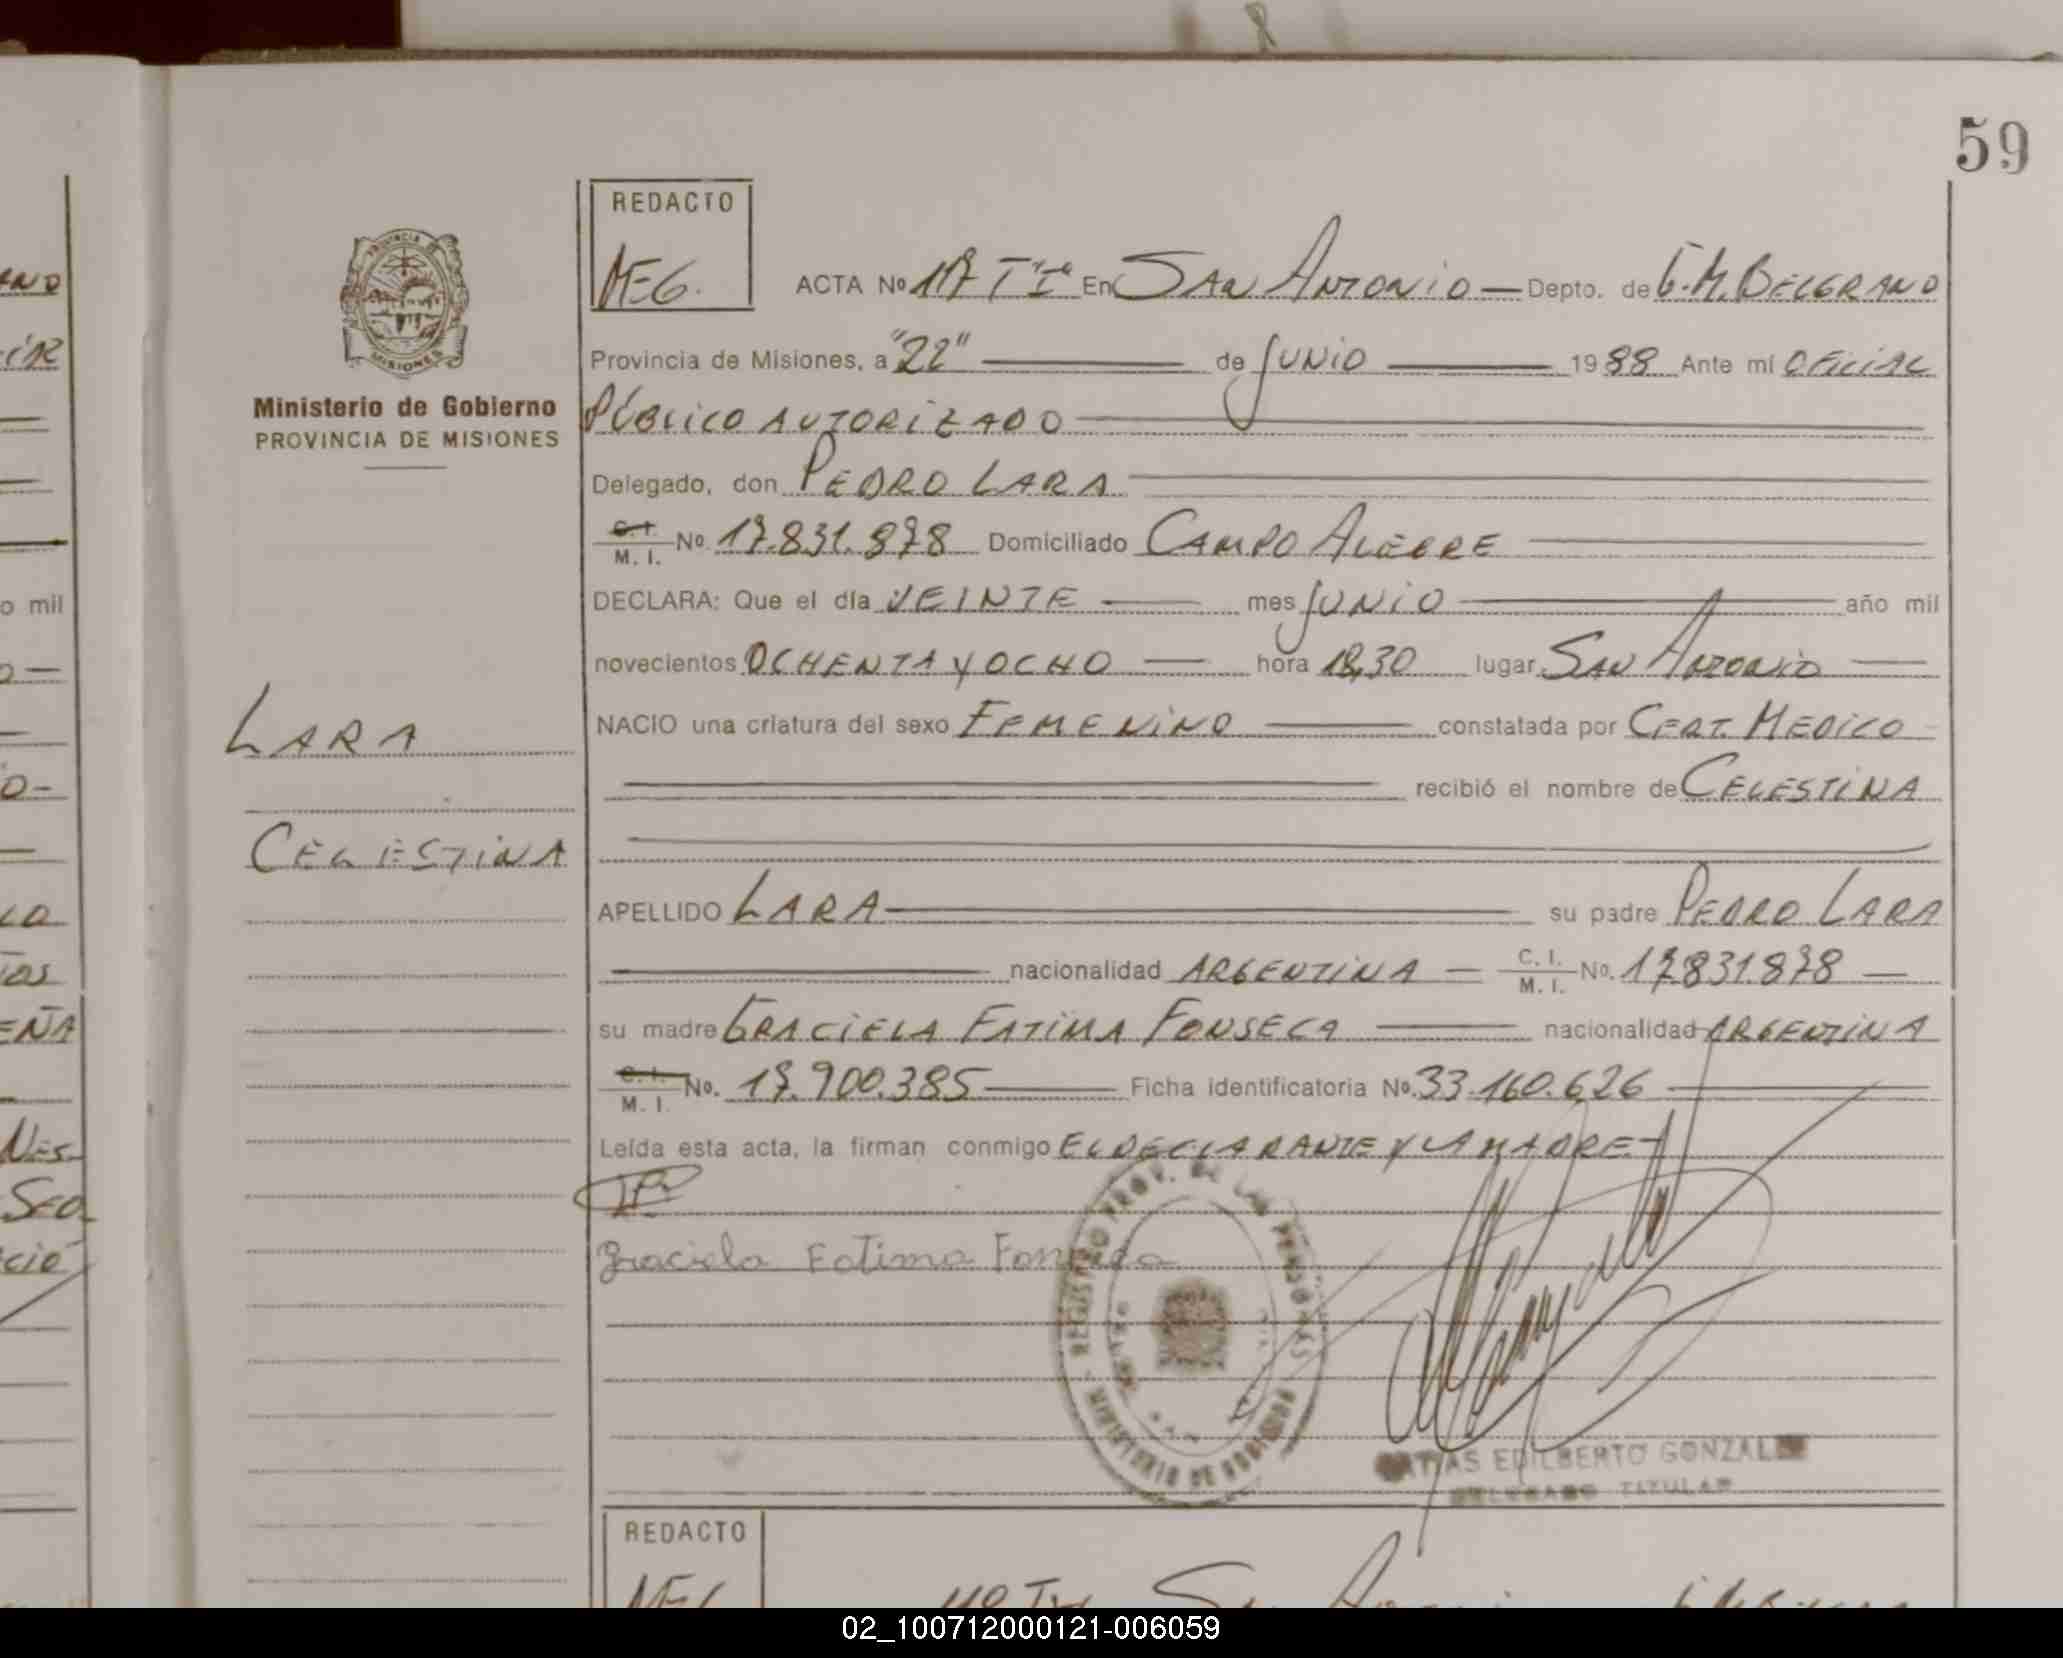 59
REDACTO
MEG.
ACTA Nº 117 Tº Iº En SAN ANTONIO — Depto. de G.M. BELGRANO
Provincia de Misiones, a "22" de JUNIO 1988 Ante mí OFICIAL
PÚBLICO AUTORIZADO
Delegado, don PEDRO LARA
C. I.
M. I. Nº 17.831.878 Domiciliado CAMPO ALEGRE
DECLARA: Que el día VEINTE mes JUNIO año mil
novecientos OCHENTA Y OCHO hora 18,30 lugar SAN ANTONIO
NACIO una criatura del sexo FEMENINO constatada por CERT. MEDICO
recibió el nombre de CELESTINA
APELLIDO LARA su padre PEDRO LARA
nacionalidad ARGENTINA C. I. M. I. Nº. 17.831.878
su madre GRACIELA FATIMA FONSECA nacionalidad ARGENTINA
C. I.
M. I. Nº. 17.900.385 Ficha identificatoria Nº. 33.160.626
Leída esta acta, la firman conmigo EL DECLARANTE Y LA MADRE
Graciela Fatima Fonseca
REGISTRO PROV. DE LAS PERSONAS
MINISTERIO DE GOBIERNO
MATIAS EDILBERTO GONZALEZ
DELEGADO TITULAR
PROVINCIA DE
MISIONES
Ministerio de Gobierno
PROVINCIA DE MISIONES
LARA
CELESTINA
REDACTO
02_100712000121-006059